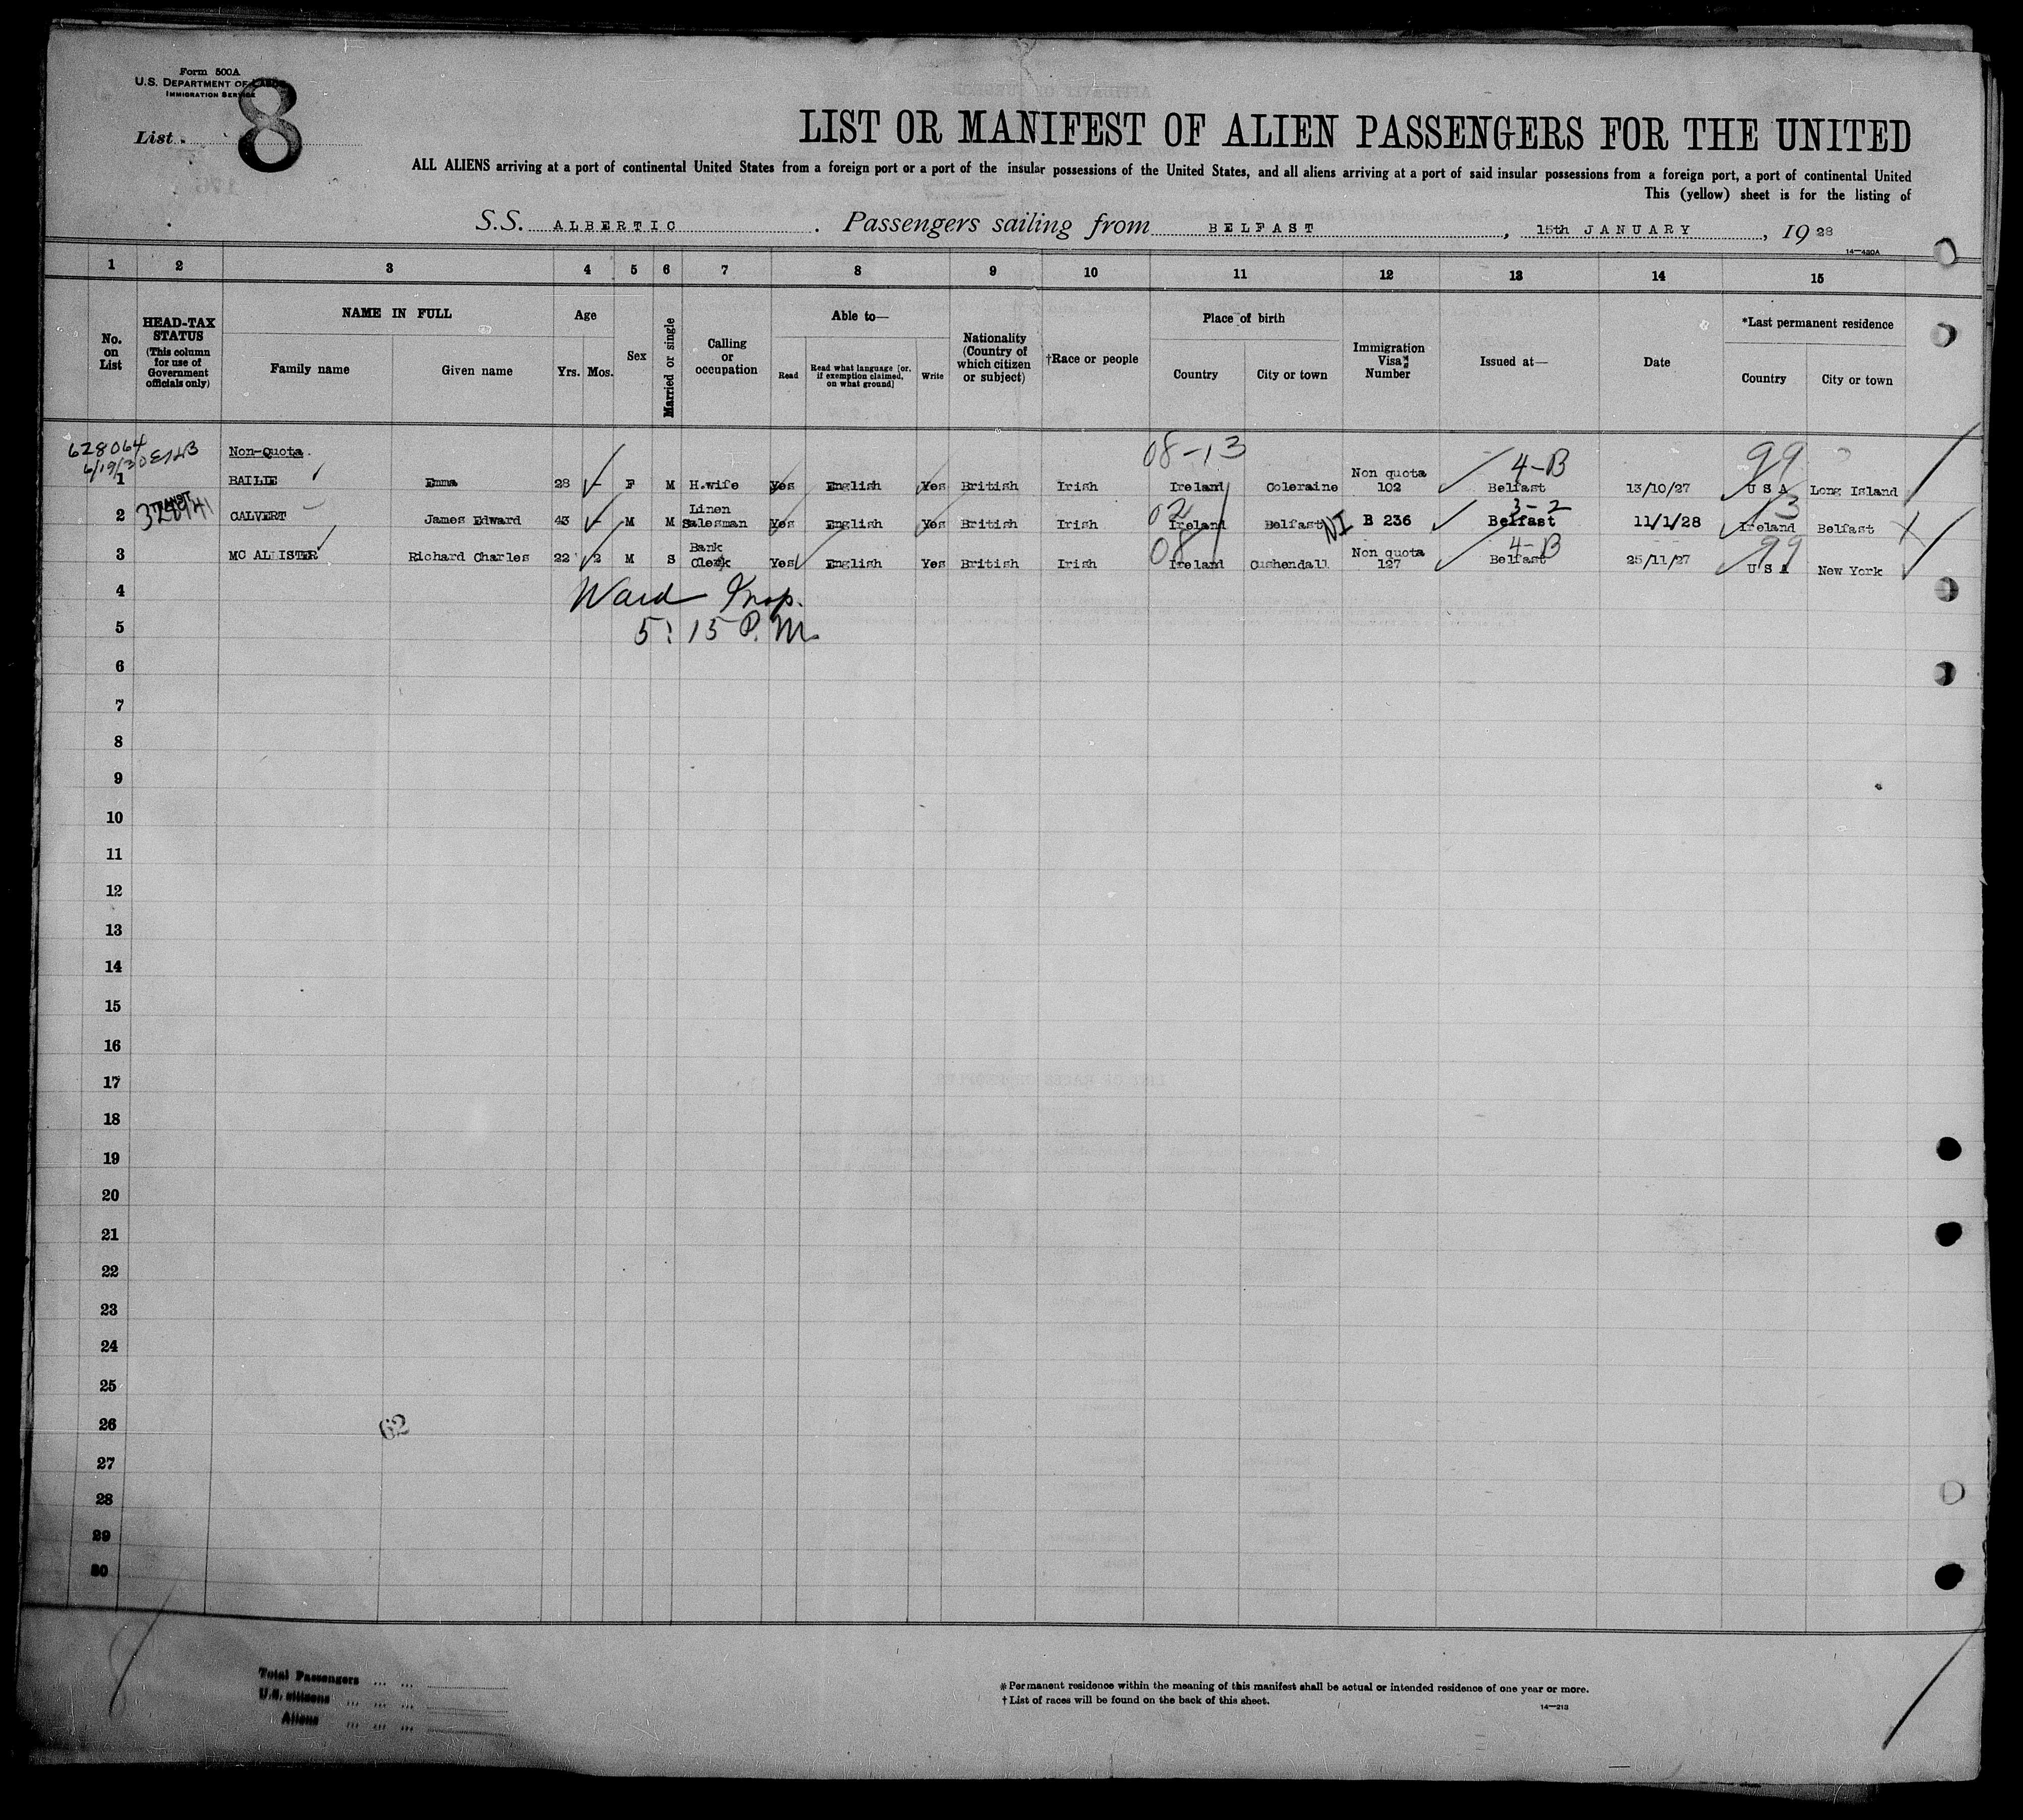 Form 500A
U.S. DEPARTMENT OF LABOR
IMMIGRATION SERVICE
List 8
LIST OR MANIFEST OF ALIEN PASSENGERS FOR THE UNITED
ALL ALIENS arriving at a port of continental United States from a foreign port or a port of the insular possessions of the United States, and all aliens arriving at a port of said insular possessions from a foreign port, a port of continental United
This (yellow) sheet is for the listing of
S.S. ALBERTIC. Passengers sailing from BELFAST, 15th JANUARY, 1928
14—430A
1 2 3 4 5 6 7 8 9 10 11 12 13 14 15
No. on List
HEAD-TAX STATUS (This column for use of Government officials only)
NAME IN FULL
Family name Given name
Age
Yrs. Mos.
Sex
Married or single
Calling or occupation
Able to—
Read Read what language [or, if exemption claimed, on what ground] Write
Nationality (Country of which citizen or subject)
†Race or people
Place of birth
Country City or town
Immigration Visa Number
Issued at—
Date
*Last permanent residence
Country City or town
628064
6/19/30
Non-Quota.
08-13 4-B 99
1 BAILIE Emma 28 - F M H.wife Yes English Yes British Irish Ireland Coleraine Non quota 102 Belfast 13/10/27 U S A Long Island
TRANSIT
02 3-2 3
2 CALVERT James Edward 43 - M M Linen Salesman Yes English Yes British Irish Ireland Belfast NI B 236 Belfast 11/1/28 Ireland Belfast X
08 4-B 99
3 MC ALLISTER Richard Charles 22 2 M S Bank Clerk Yes English Yes British Irish Ireland Cushendall Non quota 127 Belfast 25/11/27 U S A New York
4 Ward Insp.
5 5:15 P.M.
6
7
8
9
10
11
12
13
14
15
16
17
18
19
20
21
22
23
24
25
26 62
27
28
29
30
8
Total Passengers ... ...
U.S. citizens ... ... ...
Aliens ... ... ...
*Permanent residence within the meaning of this manifest shall be actual or intended residence of one year or more.
†List of races will be found on the back of this sheet.
14—213